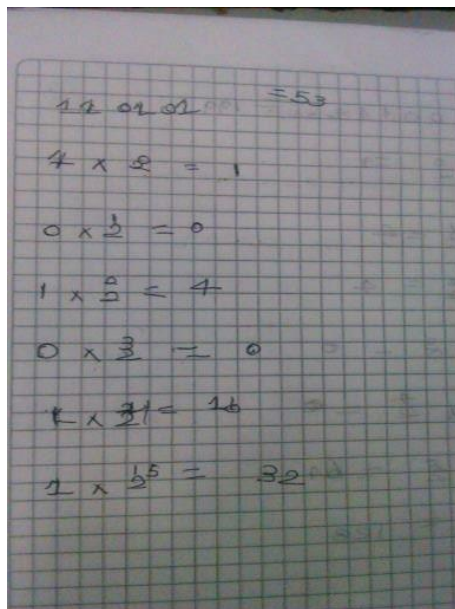 110101 =53
1 × 2 = 1
0 × 2¹ = 0
1 × 2² = 4
0 × 2³ = 0
1 × 2⁴ = 16
1 × 2⁵ = 32